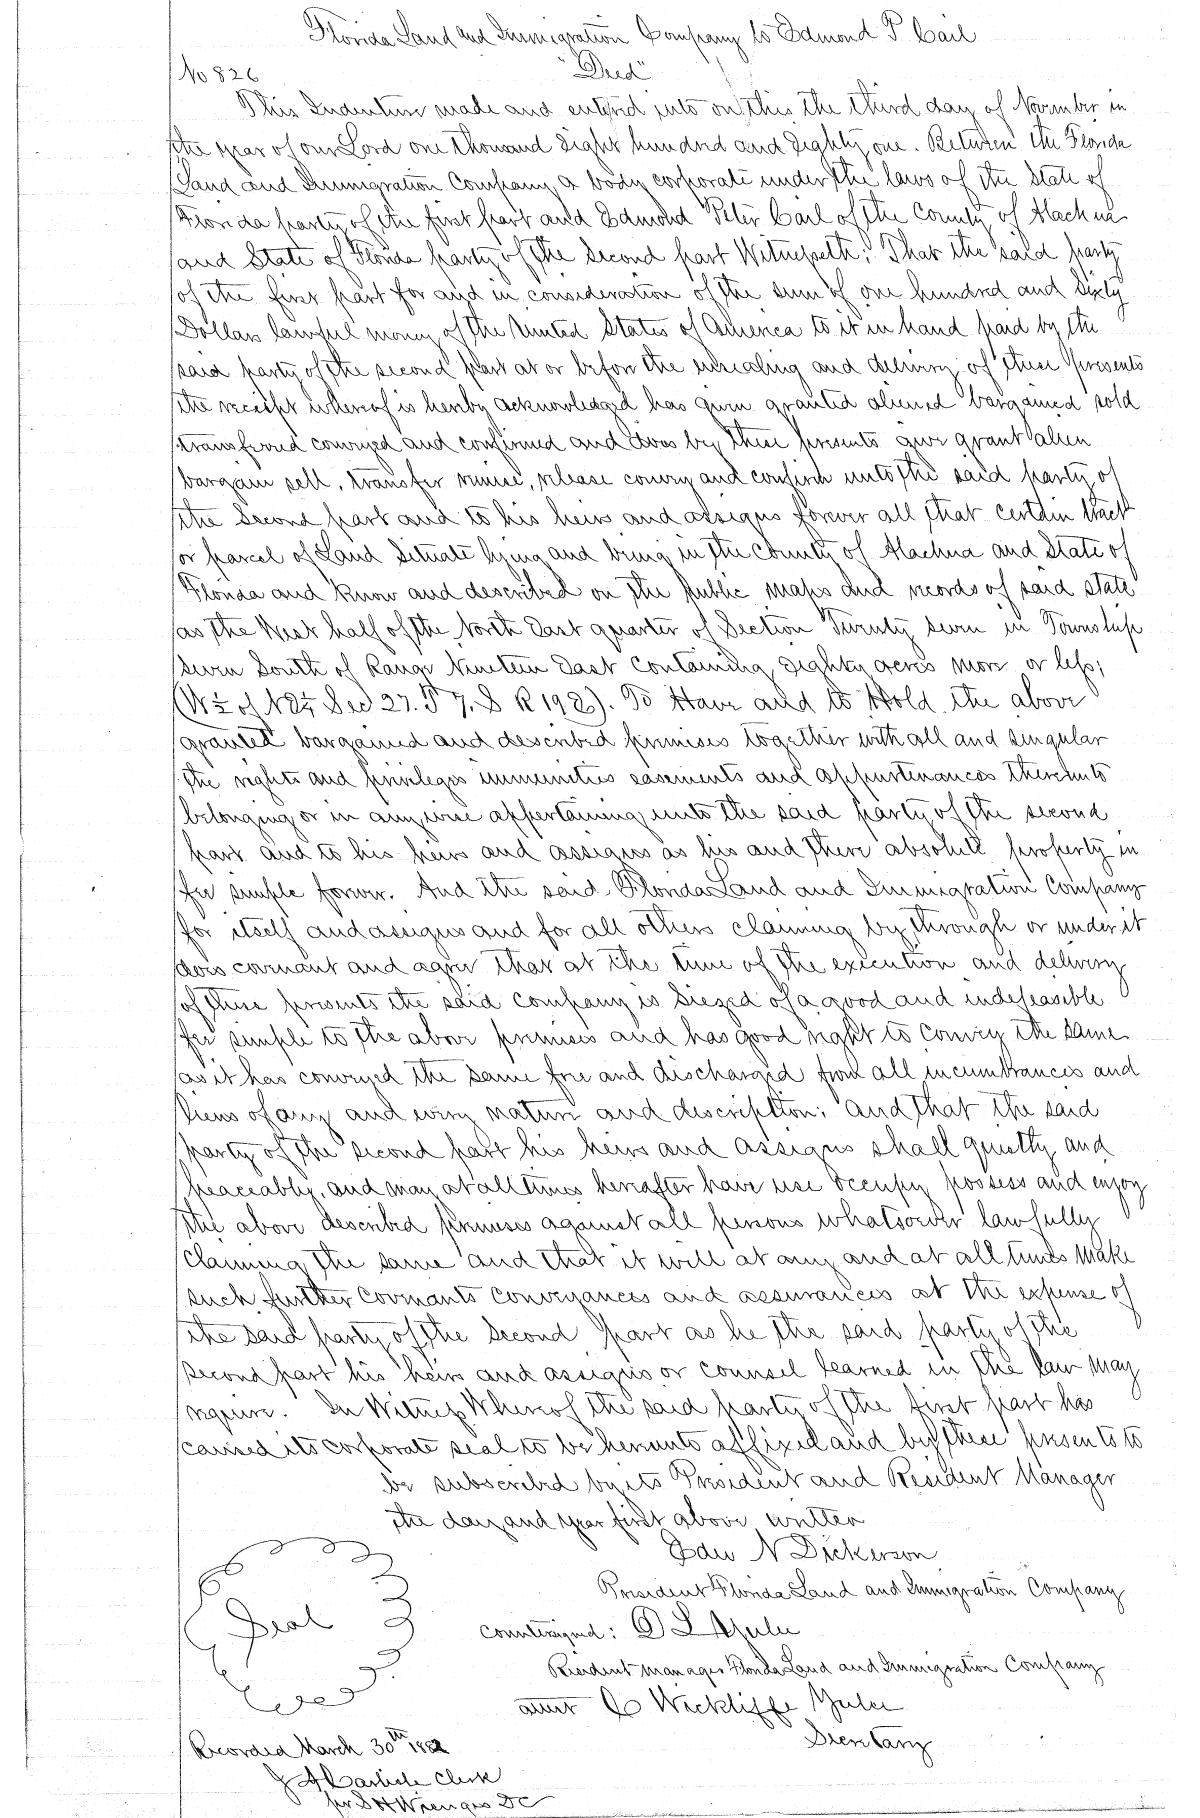 Florida Land and Immigration Company to Edmond P Cail
No 826
"Deed"
This Indenture made and entered into on this the third day of November in
the year of our Lord one thousand Eight hundred and Eighty one. Between the Florida
Land and Immigration Company a body corporate under the laws of the State of
Florida party of the first part and Edmond Peter Cail of the County of Alachua
and State of Florida party of the Second part Witnesseth: That the said party
of the first part for and in consideration of the sum of one hundred and Sixty
Dollars lawful money of the United States of America to it in hand paid by the
said party of the second part at or before the ensealing and delivery of these presents
the receipt whereof is hereby acknowledged has given granted aliened bargained sold
transferred conveyed and confirmed and does by these presents give grant alien
bargain sell, transfer remise, release convey and confirm unto the said party of
the Second part and to his heirs and assigns forever all that certain tract
or parcel of Land Situate lying and being in the County of Alachua and State of
Florida and know and described on the public maps and records of said state
as the West half of the North East quarter of Section Twenty seven in Township
seven South of Range Nineteen East containing eighty acres more or less;
(W½ of NE¼ Sec 27. T 7. S R 19 E). To Have and to Hold the above
granted bargained and described premises together with all and singular
the rights and privileges immunities easements and appurtenances thereunto
belonging or in any wise appertaining unto the said party of the second
part and to his heirs and assigns as his and there absolute property in
fee simple forever. And the said Florida Land and Immigration Company
for itself and assigns and for all others claiming by through or under it
does covenant and agree that at the time of the execution and delivery
of these presents the said company is Siezed of a good and indefeasible
fee simple to the above premises and has good right to convey the same
as it has conveyed the same free and discharged from all incumbrances and
liens of any and every nature and description: and that the said
party of the second part his heirs and assigns shall quietly and
peaceably, and may at all times hereafter have use occupy possess and enjoy
the above described premises against all persons whatsoever lawfully
claiming the same and that it will at any and at all times make
such further covenants conveyances and assurances at the expense of
the said party of the second part as he the said party of the
second part his heirs and assigns or counsel learned in the law may
require. In Witness Whereof the said party of the first part has
caused its corporate seal to be hereunto affixed and by these presents to
be subscribed by its President and Resident Manager
the day and year first above written
Edw N Dickerson
President Florida Land and Immigration Company
Seal
Countersigned: D L Yulee
Resident manager Florida Land and Immigration Company
attest C Wickliffe Yulee
Secretary
Recorded March 30th 1882
J A Carlisle Clerk
per S H DC